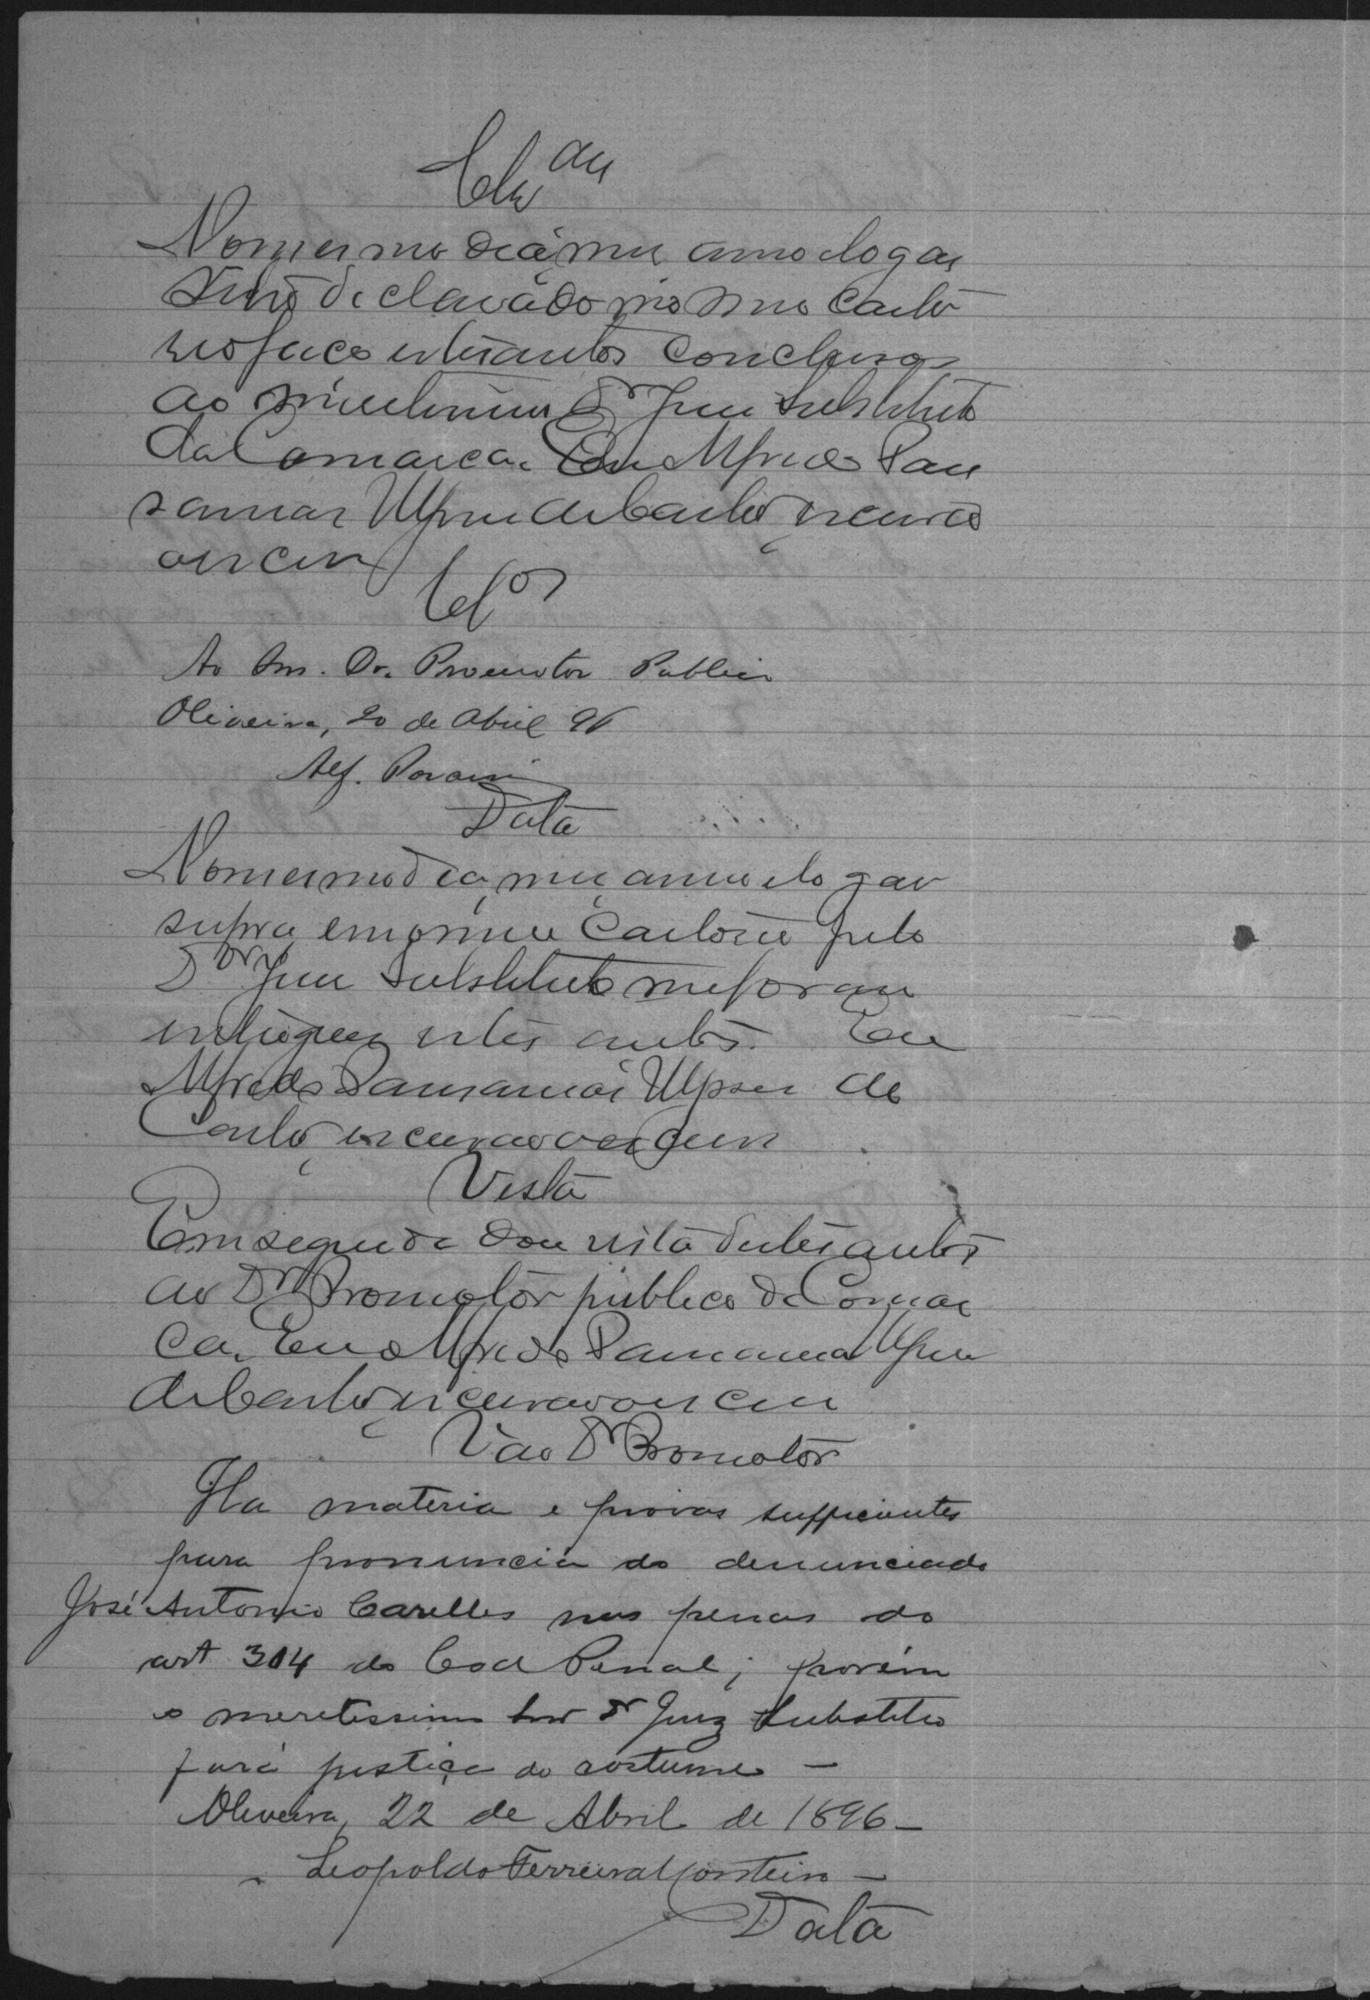 Clu am
No mesmo dia, mez anno e logar
retro declarado no meu carto
rio faço estes autos conclusos
ao Dr Juiz Substituto
da Comarca. Eu Alfredo Pan
de Carlo, escrivão
escrevi
Clos
Ao Snr. Dr. Promotor Publico
Oliveira, 20 de Abril 96
Data
No mesmo dia, mez, anno e logar
supra, em o meu Cartorio pelo
Dr Juiz Substituto me foram
entregues estes autos. Eu
Alfredo de
escrivão o escrevi
Vista
Em seguida dou vista destes autos
ao Dr Promotor publico da Comar
ca. Eu Alfredo
escrivão o escrevi
V ao Dr Promotor
Ha materia e provas sufficientes
para pronuncia do denunciado
José Antonio Carelles nas penas do
art 304 do Cod Penal; porém
o meretissimo Snr Dr Juiz Substituto
fará justiça do costume —
Oliveira, 22 de Abril de 1896 —
Leopoldo Ferreira Monteiro —
Data